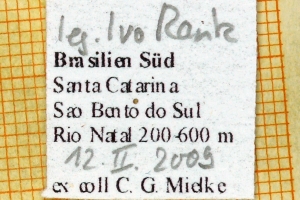 leg. Ivo Rank
Brasilien Süd
Santa Catarina
Sao Bento do Sul
Rio Natal 200-600 m
12. II. 2009
ex coll C. G. Mielke